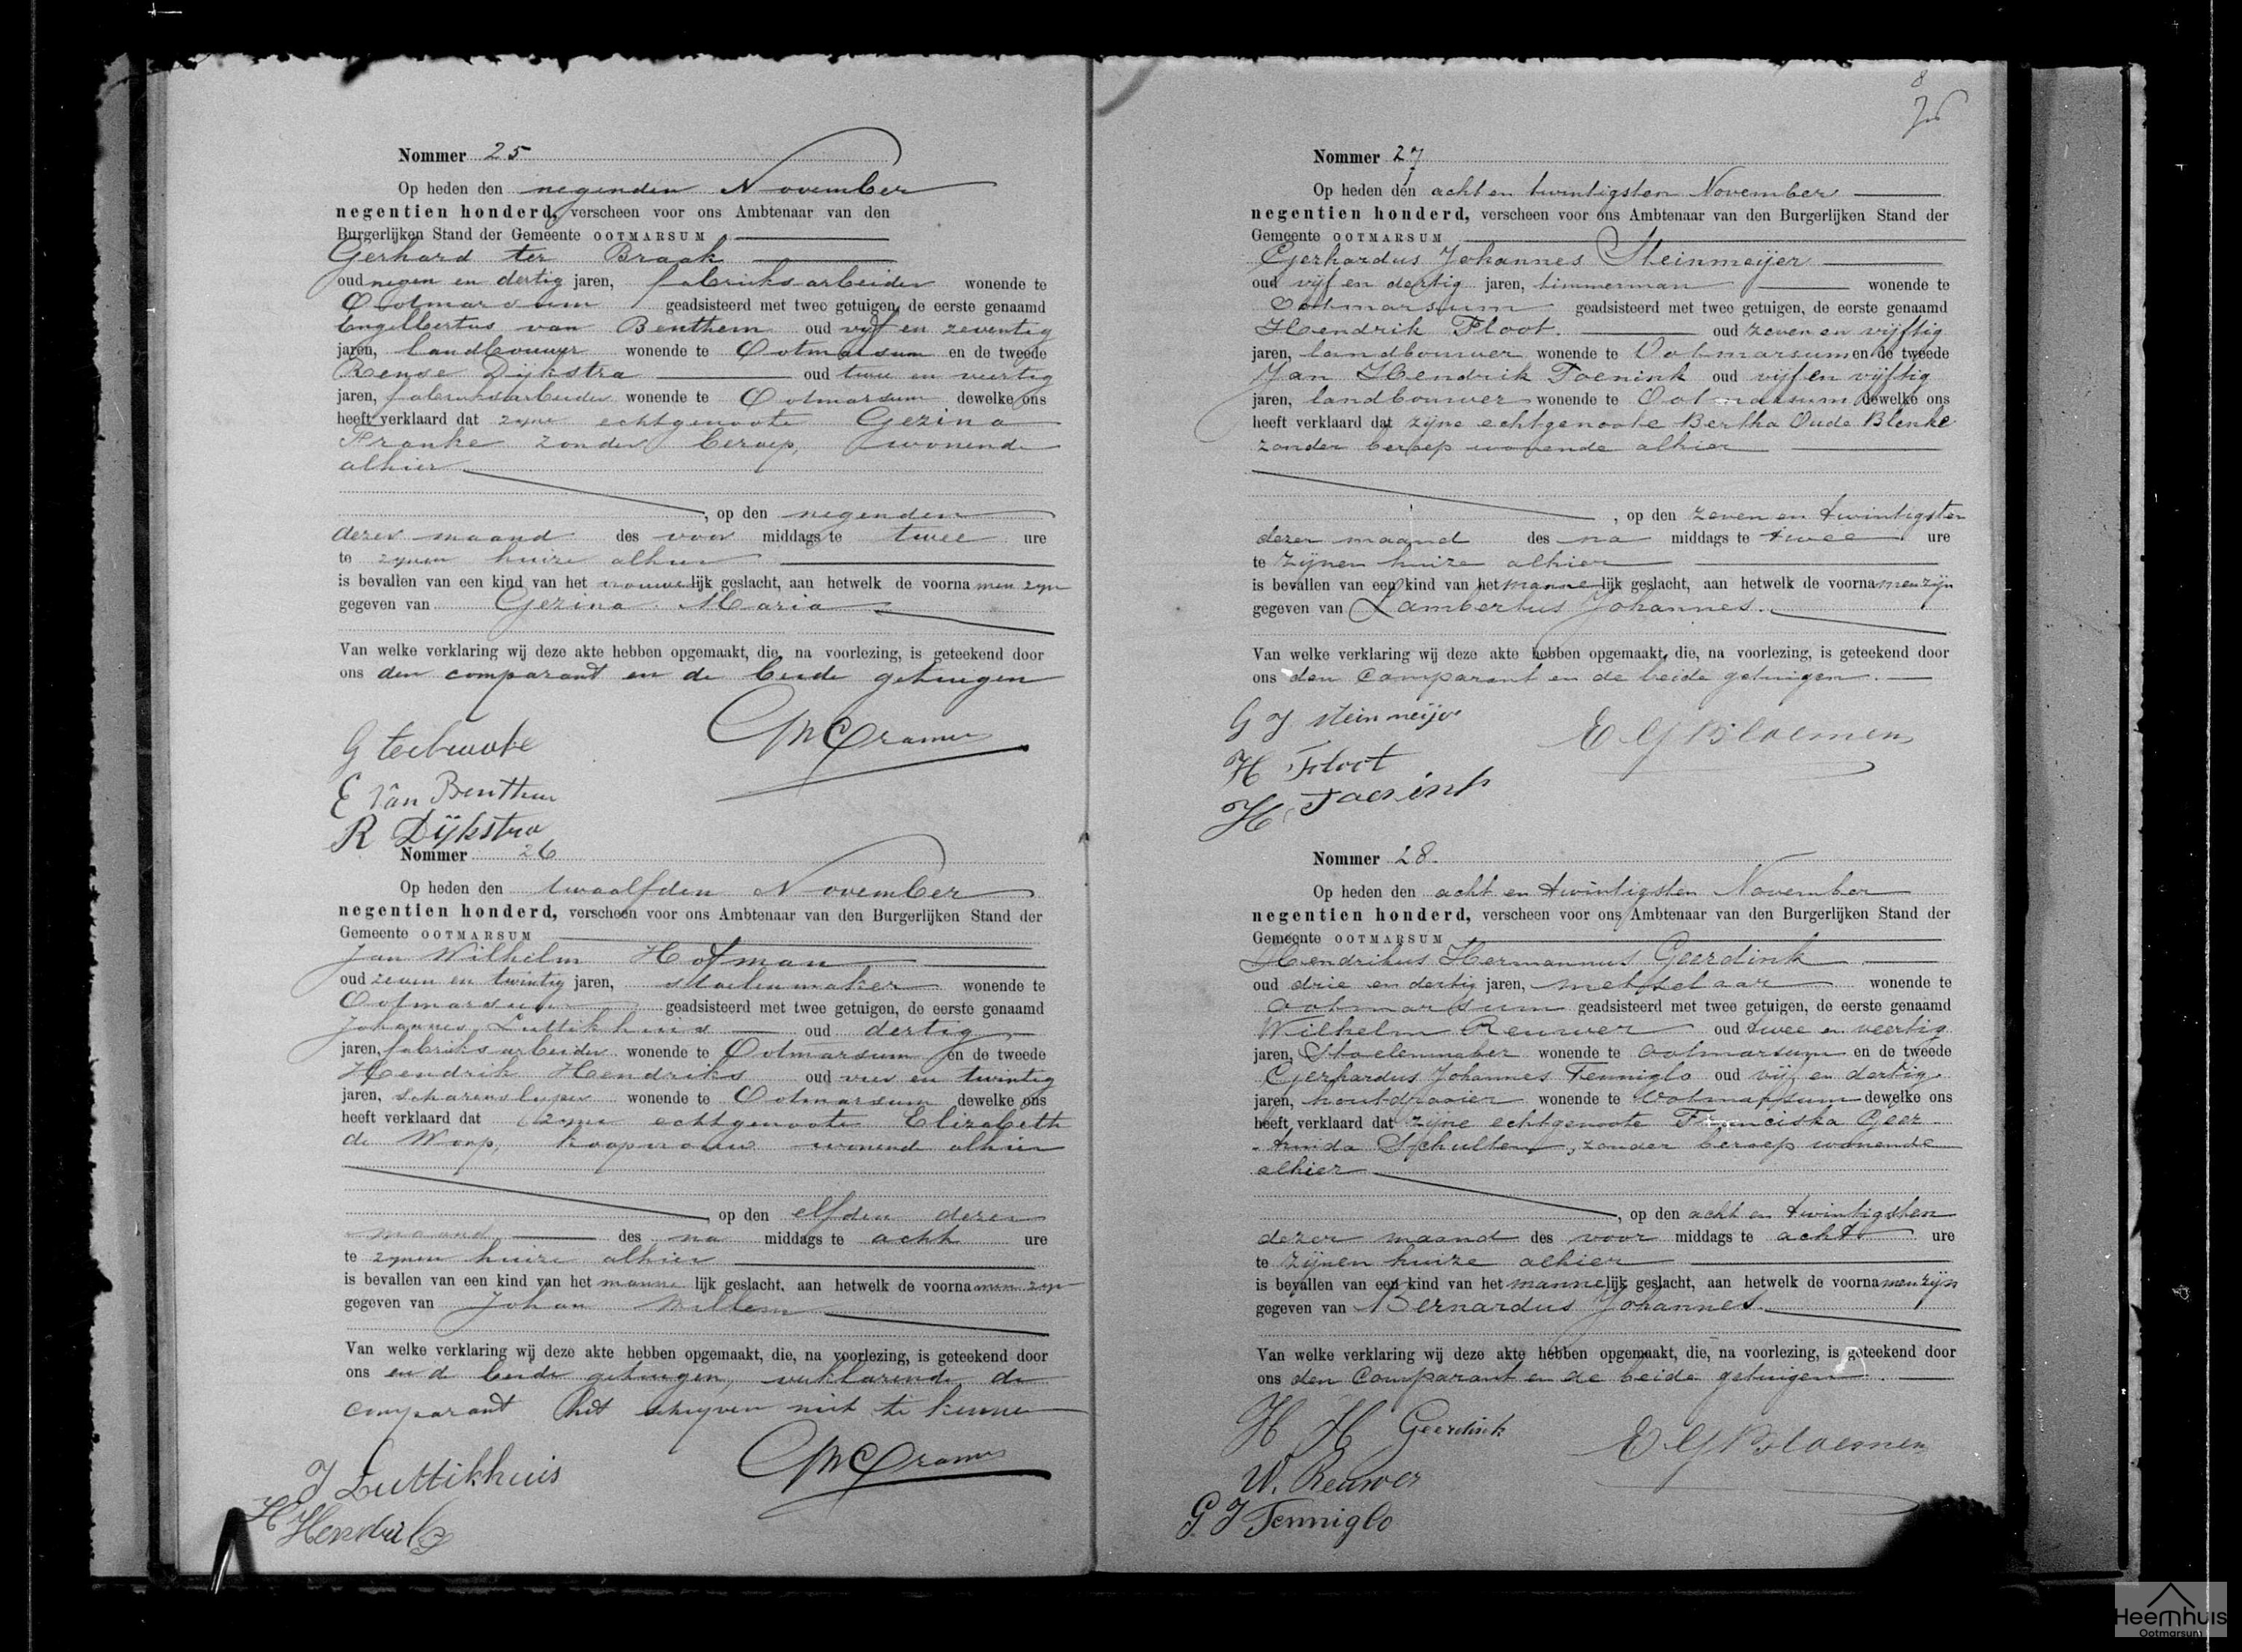 Nommer 25
Op heden den negenden November
negentien honderd, verscheen voor ons Ambtenaar van den
Burgerlijken Stand der Gemeente OOTMARSUM
Gerhard ter Braak
oud negen en dertig jaren, fabrieksarbeider wonende te
Ootmarsum geadsisteerd met twee getuigen, de eerste genaamd
Engelbertus van Benthem oud vijf en zeventig
jaren, landbouwer wonende te Ootmarsum en de tweede
Rense Dijkstra oud twee en veertig
jaren, fabrieksarbeider wonende te Ootmarsum dewelke ons
heeft verklaard dat zyne echtgenoote Gezina
Franke zonder beroep, wonende
alhier
, op den negenden
dezer maand des voor middags te twee ure
te zynen huize alhier
is bevallen van een kind van het vrouwelijk geslacht, aan hetwelk de voornamen zyn
gegeven van Gezina Maria
Van welke verklaring wij deze akte hebben opgemaakt, die, na voorlezing, is geteekend door
ons den comparant en de beide getuigen
G terbraake
Cramer
E Van Benthem
R Dijkstra
Nommer 26
Op heden den twaalfden November
negentien honderd, verscheen voor ons Ambtenaar van den Burgerlijken Stand der
Gemeente OOTMARSUM
Jan Wilhelm Hofman
oud zeven en twintig jaren, stoelenmaker wonende te
Ootmarsum geadsisteerd met twee getuigen, de eerste genaamd
Johannes Luttikhuis oud dertig
jaren, fabrieksarbeider wonende te Ootmarsum en de tweede
Hendrik Hendriks oud vier en twintig
jaren, scharensliper wonende te Ootmarsum dewelke ons
heeft verklaard dat zyne echtgenoote Elizabeth
de Worp, koopvrouw wonende alhier
, op den elfden dezer
maand des na middags te acht ure
te zynen huize alhier
is bevallen van een kind van het mannelijk geslacht, aan hetwelk de voornamen zyn
gegeven van Johan Willem
Van welke verklaring wij deze akte hebben opgemaakt, die, na voorlezing, is geteekend door
ons en de beide getuigen, verklarende de
comparant het schryven niet te kennen
J Luttikhuis
Cramer
H Hendriks
8
Nommer 27
Op heden den acht en twintigsten November
negentien honderd, verscheen voor ons Ambtenaar van den Burgerlijken Stand der
Gemeente OOTMARSUM
Gerhardus Johannes Steinmeijer
oud vijf en dertig jaren, timmerman wonende te
Ootmarsum geadsisteerd met twee getuigen, de eerste genaamd
Hendrik Floot. oud zeven en vijftig
jaren, landbouwer wonende te Ootmarsum en de tweede
Jan Hendrik Toenink oud vijf en vijftig
jaren, landbouwer wonende te Ootmarsum dewelke ons
heeft verklaard dat zijne echtgenoote Bertha Oude Blenke
zonder beroep wonende alhier
, op den zeven en twintigsten
dezer maand des na middags te twee ure
te zijnen huize alhier
is bevallen van een kind van het mannelijk geslacht, aan hetwelk de voornamen zijn
gegeven van Lambertus Johannes.
Van welke verklaring wij deze akte hebben opgemaakt, die, na voorlezing, is geteekend door
ons den Comparant en de beide getuigen.
G J Steinmeijer
E G Bloemen
H Floot
H Toenink
Nommer 28.
Op heden den acht en twintigsten November
negentien honderd, verscheen voor ons Ambtenaar van den Burgerlijken Stand der
Gemeente OOTMARSUM
Hendrikus Hermannus Geerdink
oud drie en dertig jaren, metselaar wonende te
Ootmarsum geadsisteerd met twee getuigen, de eerste genaamd
Wilhelm Reuwer oud twee en veertig
jaren, Stoelenmaker wonende te Ootmarsum en de tweede
Gerhardus Johannes Tenniglo oud vijf en dertig
jaren, houtdraaier wonende te Ootmarsum dewelke ons
heeft verklaard dat zijne echtgenoote Franciska Geer-
truida Scholten, zonder beroep wonende
alhier
, op den acht en twintigsten
dezer maand des voor middags te acht ure
te zijnen huize alhier
is bevallen van een kind van het mannelijk geslacht, aan hetwelk de voornamen zijn
gegeven van Bernardus Johannes.
Van welke verklaring wij deze akte hebben opgemaakt, die, na voorlezing, is geteekend door
ons den Comparant en de beide getuigen.
H H Geerdink
E G Bloemen
W. Reuwer
G. J Tenniglo
Heemhuis
Ootmarsum